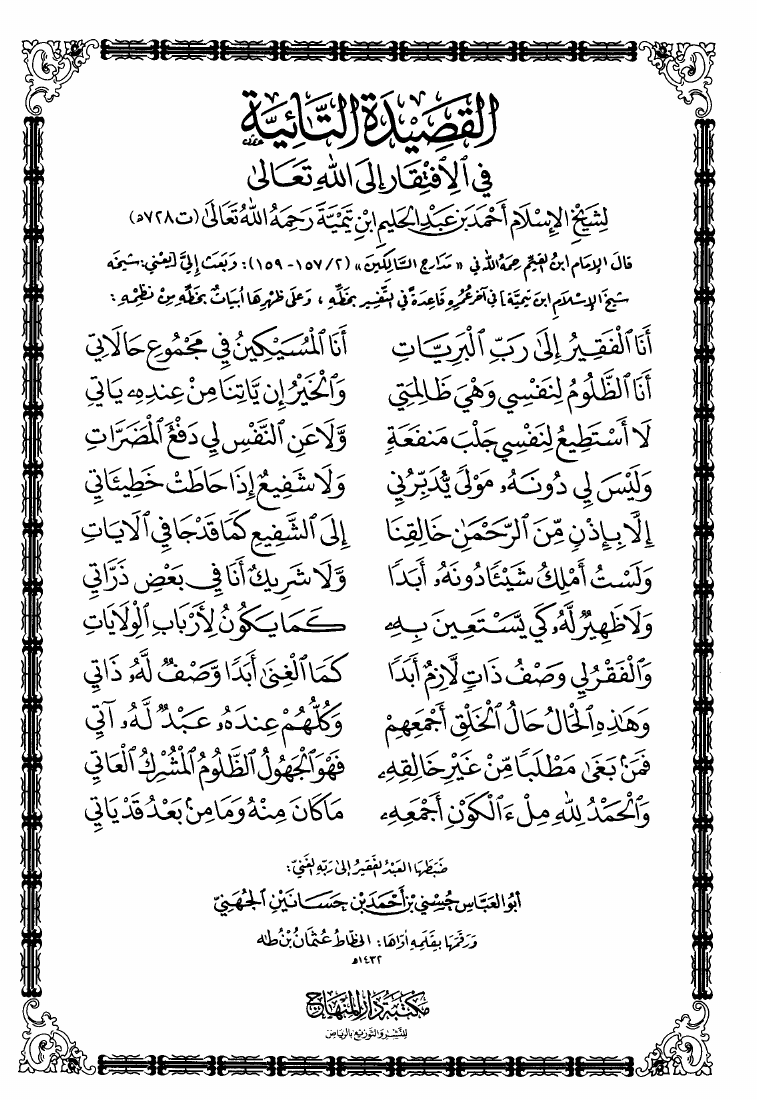 القَصِيْدَةُ التَّائِيَّةُ
فِي ٱلِافْتِقَارِ إِلَى اللهِ تَعَالَى
لِشَيْخِ الإِسْلَامِ أَحْمَدَ بْنِ عَبْدِ الحَلِيمِ ابْنِ تَيْمِيَّةَ رَحِمَهُ اللهُ تَعَالَى (ت٧٢٨ه)
قَالَ الإِمَام ابنُ القَيِّم رَحِمَهُ الله فِي «مَدَارِج السَّالِكِينَ» (٢/ ١٥٧- ١٥٩): وَبَعَثَ إِلَيَّ [يَعْنِي: شَيْخَه
شَيْخَ الإِسْلَام ابنَ تَيْمِيَّة] فِي آخِرِ عُمُرِهِ قَاعِدَةً فِي التَّفْسِيرِ بِخَطِّهِ ، وَعَلَى ظَهْرِهَا أَبْيَاتٌ بِخَطِّهِ مِنْ نَظْمِهِ :
أَنَا ٱلْفَقِيرُ إِلَىٰ رَبِّ ٱلْبَرِيَّاتِ أَنَا ٱلْمُسَيْكِينُ فِي مَجْمُوعِ حَالَاتِي
أَنَا ٱلظَّلُومُ لِنَفْسِي وَهْيَ ظَالِمَتِي وَٱلْخَيْرُ إِن يَّاتِنَا مِنْ عِندِهِۦ يَاتِي
لَا أَسْتَطِيعُ لِنَفْسِي جَلْبَ مَنفَعَةٍ وَّلَا عَنِ ٱلنَّفْسِ لِي دَفْعُ ٱلْمَضَرَّاتِ
وَلَيْسَ لِي دُونَهُۥ مَوْلًى يُّدَبِّرُنِي وَلَا شَفِيعٌ إِذَا حَاطَتْ خَطِيئَاتِي
إِلَّا بِإِذْنٍ مِّنَ ٱلرَّحْمَٰنِ خَالِقِنَا إِلَى ٱلشَّفِيعِ كَمَا قَدْ جَا فِي ٱلَايَاتِ
وَلَسْتُ أَمْلِكُ شَيْئًا دُونَهُۥ أَبَدًا وَّلَا شَرِيكٌ أَنَا فِي بَعْضِ ذَرَّاتِي
وَلَا ظَهِيرٌ لَّهُۥ كَي يَّسْتَعِينَ بِهِۦ كَمَا يَكُونُ لِأَرْبَابِ ٱلْوِلَايَاتِ
وَٱلْفَقْرُ لِي وَصْفُ ذَاتٍ لَّازِمٌ أَبَدًا كَمَا ٱلْغِنَىٰ أَبَدًا وَّصْفٌ لَّهُۥ ذَاتِي
وَهَٰذِهِ ٱلْحَالُ حَالُ ٱلْخَلْقِ أَجْمَعِهِمْ وَكُلُّهُمْ عِندَهُۥ عَبْدٌ لَّهُۥ آتِي
فَمَنۢ بَغَىٰ مَطْلَبًا مِّنْ غَيْرِ خَالِقِهِۦ فَهْوَ ٱلْجَهُولُ ٱلظَّلُومُ ٱلْمُشْرِكُ ٱلْعَاتِي
وَٱلْحَمْدُ لِلهِ مِلْءَ ٱلْكَوْنِ أَجْمَعِهِۦ مَا كَانَ مِنْهُ وَمَا مِنۢ بَعْدُ قَدْ يَاتِي
ضَبَطَهَا العَبْدُ الفَقِيرُ إِلَىٰ رَبِّهِ الغَنِيِّ:
أَبُو العَبَّاسِ حُسْنِي بْنِ أَحْمَدَ بْنِ حَسَانَيْنِ الجُهَنِيّ
وَرَقَمَهَا بِقَلَمِهِ أَوَّاهَا: الخَطَّاطُ عُثْمَانُ بْنُ طه
١٤٣٢هـ
مَكْتَبَةُ دَارِ المِنْهَاجِ
لِلنَّشْرِ وَالتَّوْزِيع بِالرِّيَاض